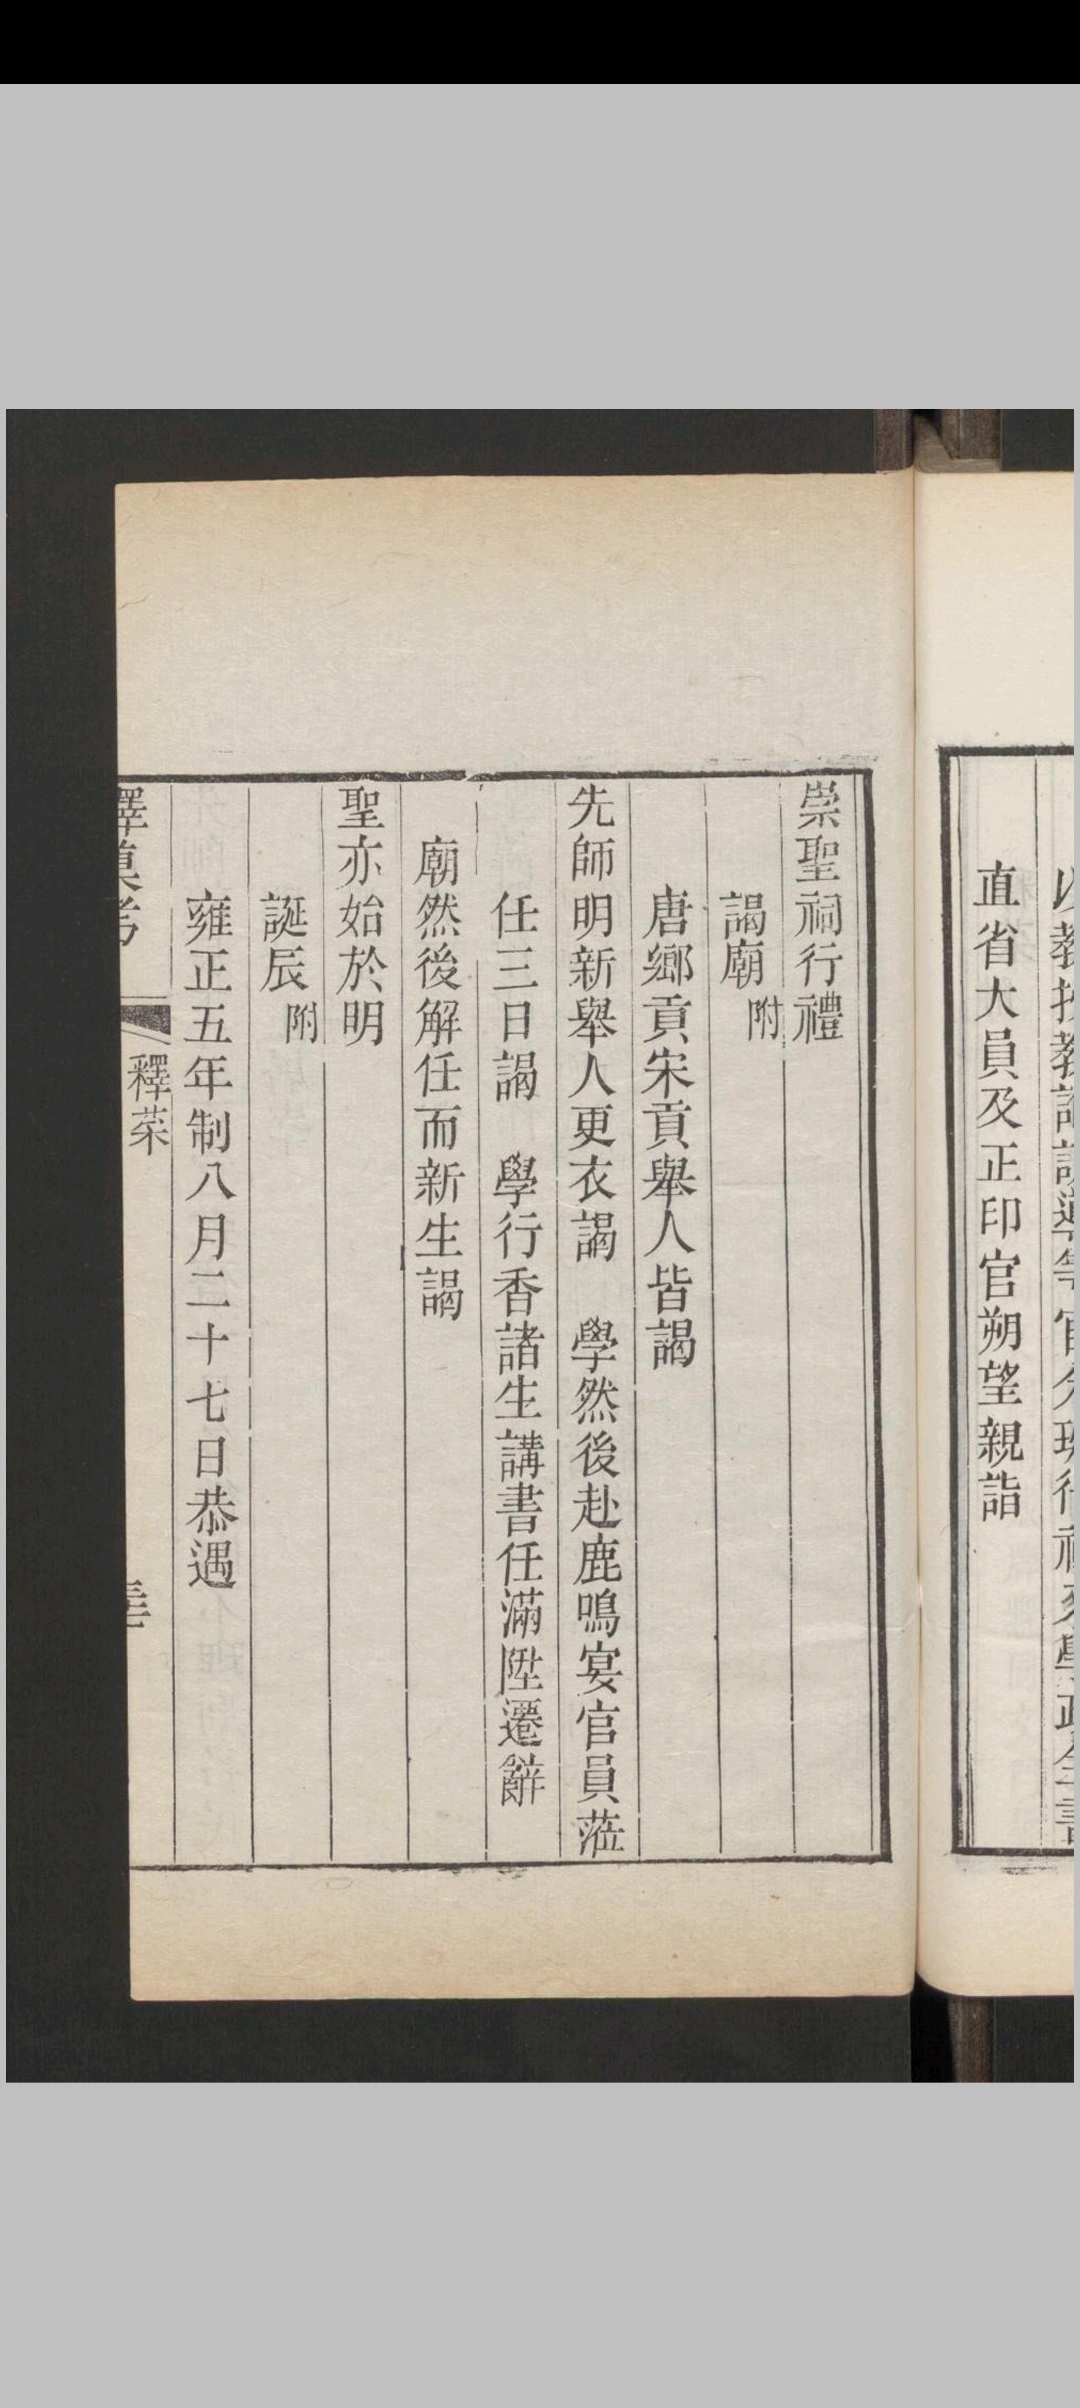 直省大員及正印官朔望親詣
崇聖祠行禮
謁廟附
唐鄉貢宋貢舉人皆謁
先師明新舉人更衣謁 學然後赴鹿鳴宴官員蒞
任三日謁 學行香諸生講書任滿陞遷辭
廟然後解任而新生謁
聖亦始於明
誕辰附
雍正五年制八月二十七日恭遇
釋奠考 釋菜